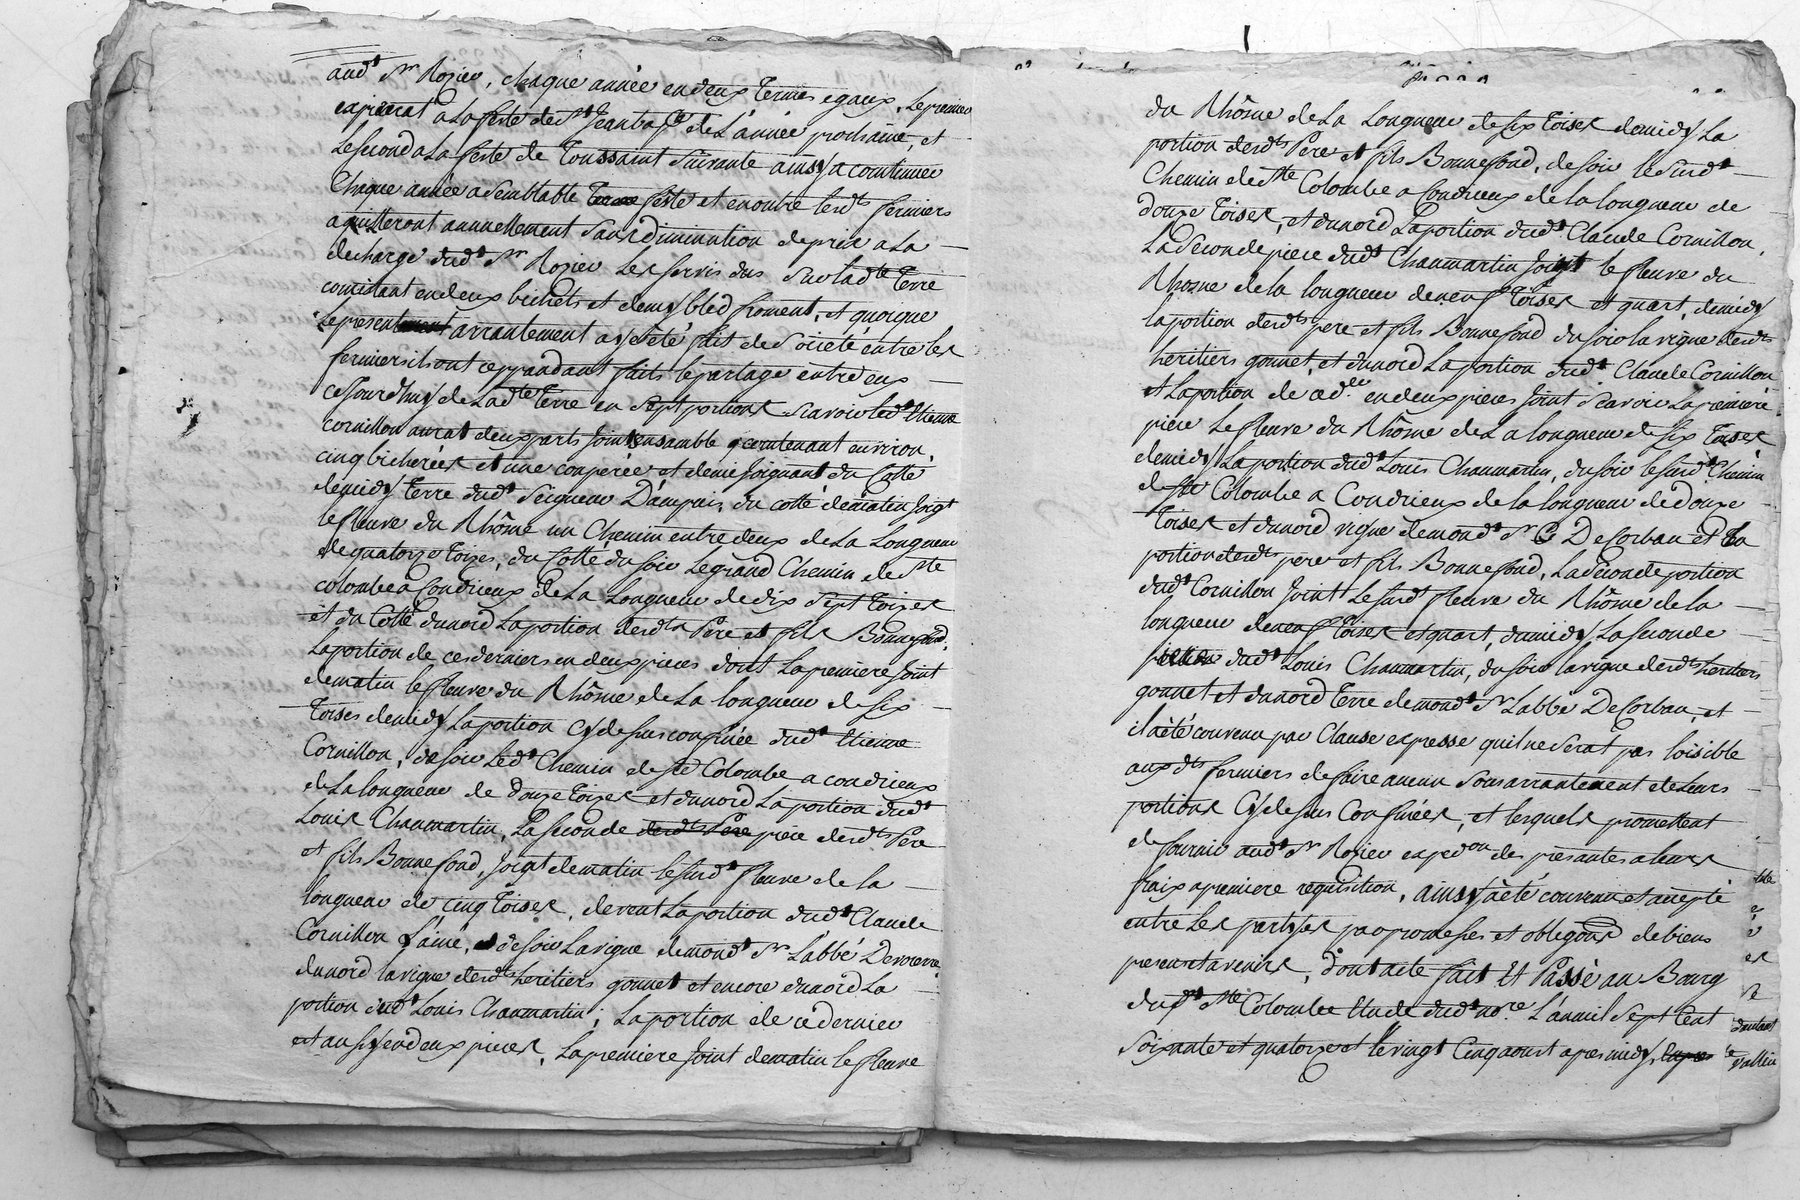 aud.t Sr Rozier, chaque année en deux termes egaux, le premier
expirerat a la feste de St Jean bap.te de L'année prochaine, et
Le second a La feste de Toussaint Suivante ainsy a continuer
Chaque année a Semblable feste et en outre lesd.ts fermiers
aquitteront annuellement Sans diminution de prix a La
decharge dud.t Sr Rozier Les servis dus Sur lad.te Terre
consistant en deux bichets et demy bled froment, et quoique
Le present arrantement aye été fait de Société entre les
fermiers ils ont cependant faits le partage entre eux
ce Jourd'huy de Lad.te Terre en Sept portions Scavoir led.t Etienne
Cornillon aurat deux parts Joint ensamble contenant environ
cinq bicherées et une couperée et demi Joignant du Cotté
de midy Terre dud.t Seigneur D'ampuis, du cotté de matin Joigt
le fleuve du Rhône un Chemin entre deux de La Longueur
de quatorze Toizes, du Cotté du soir Le grand Chemin de Ste
Colombe a Condrieux de La Longueur de dix Sept Toizes
et du Cotté du nord La portion desd.ts Pere et fils Bonnefond,
La portion de ces derniers en deux pieces dont La premiere Joint
de matin le fleuve du Rhône de La longueur de Six
Toises de midy La portion Cy dessus confinée dud.t Etienne
Cornillon, de soir Led.t Chemin de Ste Colombe a condrieux
de La longueur de douze Toizes et du nord La portion dud.t
Louis Chaumartin, La Seconde desd.ts Pere piece desd.ts Pere
et fils Bonnefond, Joigt de matin le Sud.t fleuve de la
longueur de cinq Toises, de vent La portion dud.t Claude
Cornillon L'ainé, de soir La vigne de mond.t Sr L'abbé
du nord la vigne desd.ts heritiers gonnet et encore du nord La
portion dud.t Louis Chaumartin; La portion de ce dernier
et aussy en deux pieces, La premiere Joint de matin le fleuve
du Rhône de La Longueur de Six Toises de midy La
portion desd.ts Pere et fils Bonnefond, de soir le Sud.t
Chemin de Ste Colombe a Condrieux de la longueur de
douze Toises, et du nord La portion dud.t Claude Cornillon,
La Seconde piece dud.t Chaumartin Joigt le fleuve du
Rhosne de la longueur de neuf Toises et quart, de midy
la portion desd.ts pere et fils Bonnefond du soir la vigne desd.ts
heritiers gonnet, et du nord La portion dud.t Claude Cornillon
et La portion de ced.r en deux pieces Joint Scavoir La premiere
piece Le fleuve du Rhône de La longueur de Six Toises
de midy La portion dud.t Louis Chaumartin, du soir le sud.t Chemin
de Ste Colombe a Condrieux de la longueur de douze
Toises et du nord vigne de mond.t Sr De Corbau et La
portion desd.ts pere et fils Bonnefond, La Seconde portion
dud.t Cornillon Joint Le sud.t fleuve du Rhône de la
longueur de neuf Toises et quart, du midy La Seconde
dud.t Louis Chaumartin, du soir la vigne desd.ts heritiers
gonnet et du nord Terre de mond.t Sr L'abbé De Corbau, et
il a été convenu par Clause expresse quil ne Serat pas loisible
auxd.ts fermiers de faire aucun Sous arrantement de Leurs
portions Cy dessus Confinées, et lesquels promettent
de fournir aud.t Sr Rozier exped.on des présantes a leurs
fraix a premiere requisition, ainsy a été convenu et accepté
entre Les parties par promesses et obligons de biens
present avenirs, dont acte fait Et Passé au Bourg
dud.t Ste Colombe Etude dud.t no.re L'an mil Sept Cent
Soixante et quatorze et le vingt Cinq aoust apres midy,